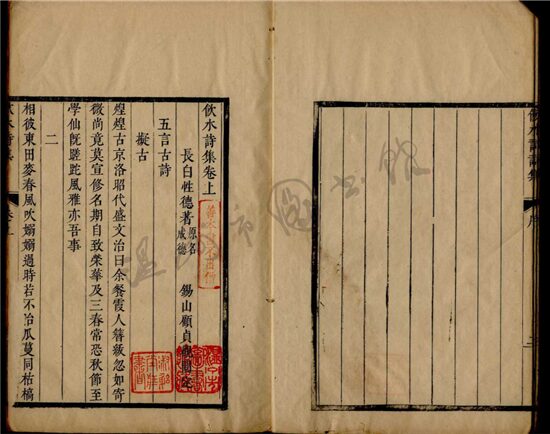 序
飲水詩集卷上
長白性德著 原名成德 錫山顧貞觀閱定
五言古詩
擬古
煌煌古京洛昭代盛文治日余餐霞人簪紱忽如寄
微尚竟莫宣修名期自致榮華及三春常恐秋節至
學仙既蹉跎風雅亦吾事
二
相彼東田麥春風吹嫋嫋過時若不治瓜蔓同枯槁
飲水詩集 卷上
温州市圖書館